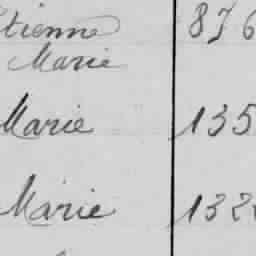 Etienne 876
Marie
Marie 135
Marie 132